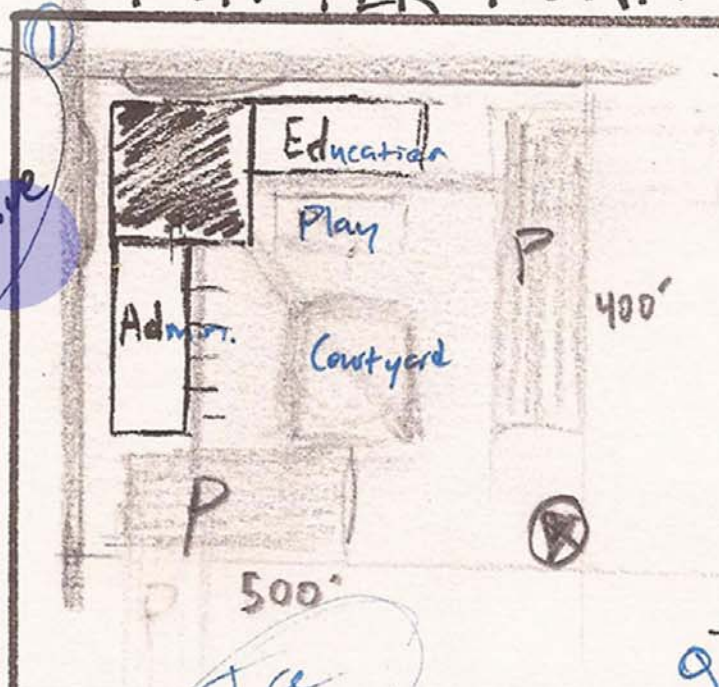 1
Education
Play
P
400'
Admin.
Courtyard
P
P
500'